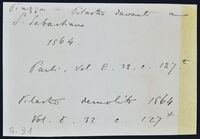 Piazza – Pilastro davanti a
S. Sebastiano
1564.
Parti, Vol. E. 32. c. 127t
Pilastro demolito 1564
Vol. E. 32 c. 127t
G. 31